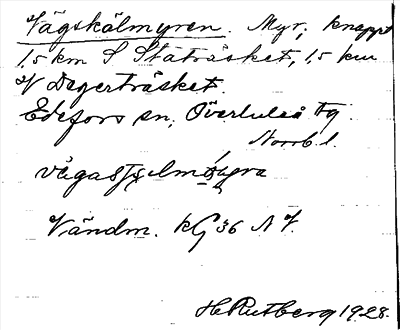 Vägskälmyren. Myr, knappt
1,5 km S Ståträsket, 1,5 km
V Degerträsket.
Edefors sn, Överluleå tg
Norrb. l.
Vändm. kG 36 N V.
H Rutberg 1928.